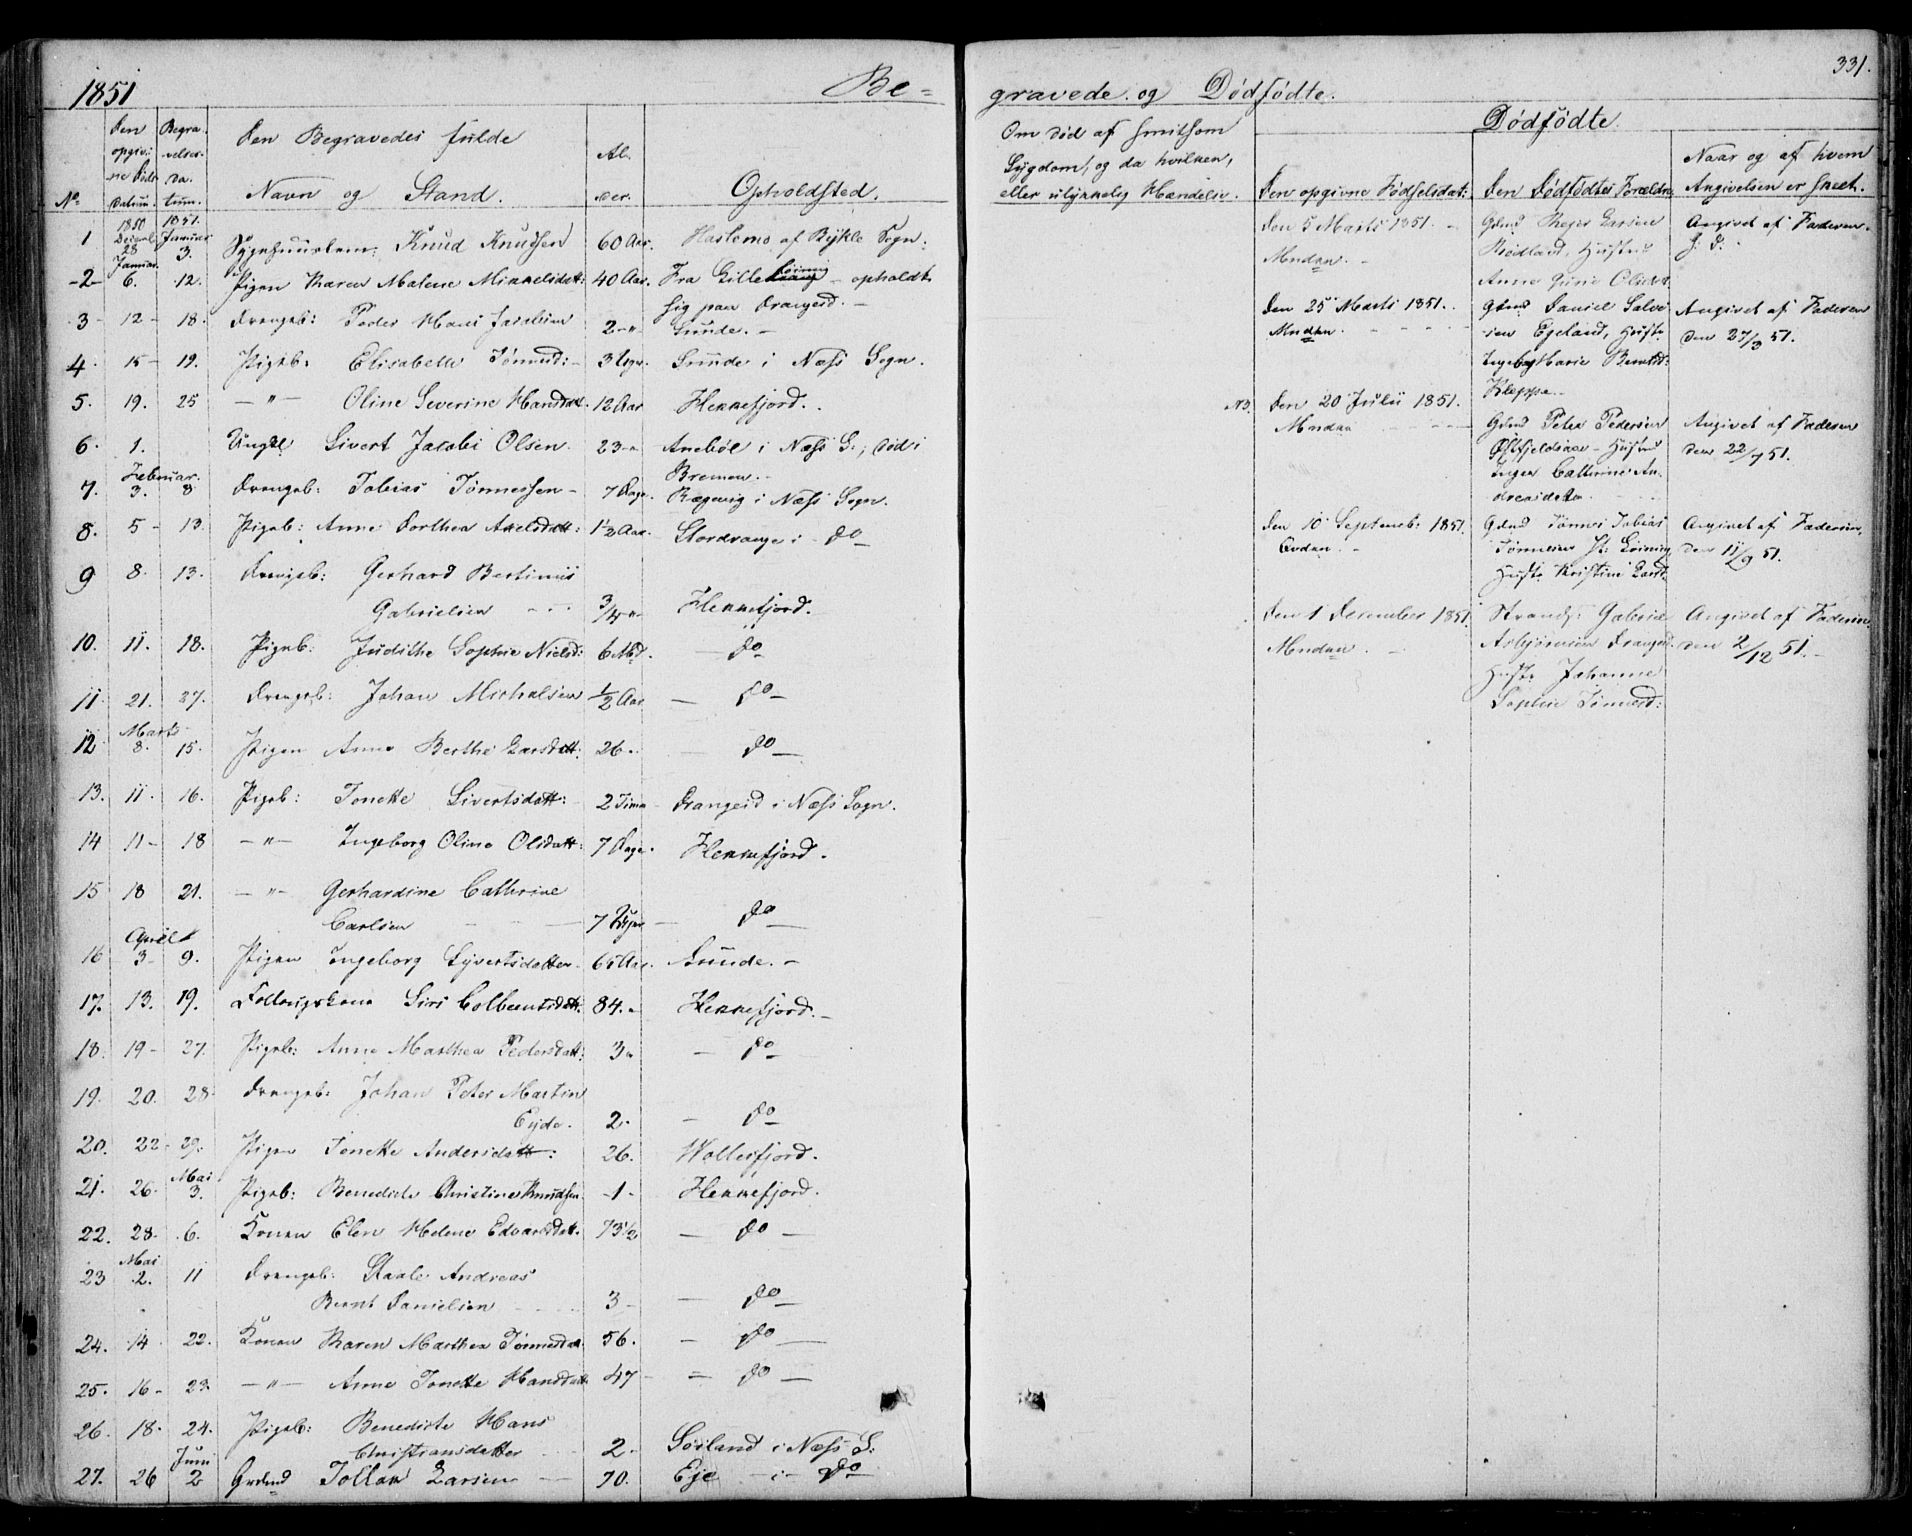 1851
Be=
No
Den opgivne Døds Datum.
Begravelses-Datum.
Den Begravedes fulde Navn og Stand.
Alder.
Opholdsted.
1 1850 Decembr 28 1851. Januar 3. Knud Knudsen 60 Aar. af Bykle Sogn.
-2- Januar. 6. 12. Pigen Karen Malene Mikkelsdatt: 40 Aar. Fra Lille - opholdt
sig paa Drangeid. -
3 - 12 - 18. Drengeb: Peder Hans Jacobsen 2 - " Sunde. -
4. 15 - 19. Pigeb: Elisabeth Tønnesd: - 3 Ugr. Sunde i Næss Sogn.
5. 19. 25 - " - Oline Severine Hansdatt. 12 Aar Hekkefjord.
6. 1. Ungkl Sivert Jacobi Olsen. 23 - " Anebøl i Næss S.; død i
Bremen. -
7. Februar. 3. 8 Drengeb: Tobias Tønnessen - 7 Dage. Rægevig i Næss Sogn.
8. 5 - 13. Pigeb: Anne Dorthea Axelsdatt: 1½ Aar. Stordrange i - do
9 8. 13. Drengeb: Gerhard Bertinius
Gabrielsen - - - 3/4 - " Hekkefjord.
10. 11. 18. Pigeb: Judithe Sophie Nielsd: 6 Md. - do
11. 21. 27. Drengeb: Johan Michalsen ½ Aar - do -
12 Marts 8. 15. Pigen Anne Berthe Larsdatt. 26 - - do -
13. 11. 16. Pigeb: Tonette Sivertsdatt: 2 Timer Drangeid i Næss Sogn.
14 11 - 18 - " - Ingeborg Oline Olsdatt: 7 Dage. Hekkefjord.
15 18 21. - " - Gerhardine Cathrine
Carlsen - 7 Uger - do -
16 April 3 - 9. Pigen Ingeborg Syvertsdatter 65 Aar. Sunde. -
17. 13. 19. Follaugskone Siri Colbeentsdatt. 84. " Hekkefjord. -
18. 19 - 27. Pigeb: Anne Marthea Pedersdatt: 3 " - do -
19. 20. 28. Drengeb: Johan Peter Martin
Eyde. 2. - do -
20. 22 - 29. Pigen Tonette Andersdatt: 26. Wollesfjord.
21. 26. Mai 3. Pigeb: Benedicte Christine Knudsen - 1 - Hekkefjord.
22. 28. 6. Konen Elen Helene Edvardsdatt. 73½ - do -
23 Mai 2. 11 Drengeb: Staale Andreas
Bernt Danielsen 3 - - do -
24. 14 22. Konen Karen Marthea Tønnesdatt. 56. - do -
25. 16 - 23. - " - Anne Tonette Hansdatt 47 - - do -
26. 18. 24. Pigeb: Benedicte Hans
Christiansdatter 2 - Søiland i Næss S:
27. 26 Juni 2 Grdmd Tollak Larsen 70. Eje - i - do
331.
gravede og Dødfødte.
Om død af smitsom Sygdom, og da hvilken, eller ulykkelig Hændelse.
Dødfødte.
Den opgivne Fødselsdat:
Den Dødfødtes Forældre
Naar og af hvem Angivelsen er skeet.
Den 5 Marts 1851. -
Mndkn. -
Grdmd Larsen
Rødland, Hustru
Anne Olsdt.
Angivet af Faderen
s. D. -
Den 25 Marts 1851.
Mndkn. - - - -
Grdmd Daniel Salve-
sen Egeland, Hustr.
Ingeborg Marie Berntsd:
Kleppe.
Angivet af Faderen
den 27/3 51.
NB. Den 20 Julii 1851.
Mndkn - - -
Grdmd Peter Pedersen
Hustru
Inger Cathrine An-
dreasdatter
Angivet af Faderen
den 22/7 51.
Den 10 Septemb: 1851
Qvdkn. -
Grdmd Tønnes Tobias
Tønnesen
Hustr Kristine Larsd.
Angivet af Faderen,
den 11/9 51.
Den 1 December 1851.
Mndkn. -
Strands: Gabriel
Asbjørnsen Drangeid
Hustr Johanne
Sophie Tønnesd:
Angivet af Faderen
den 2/12 51. -